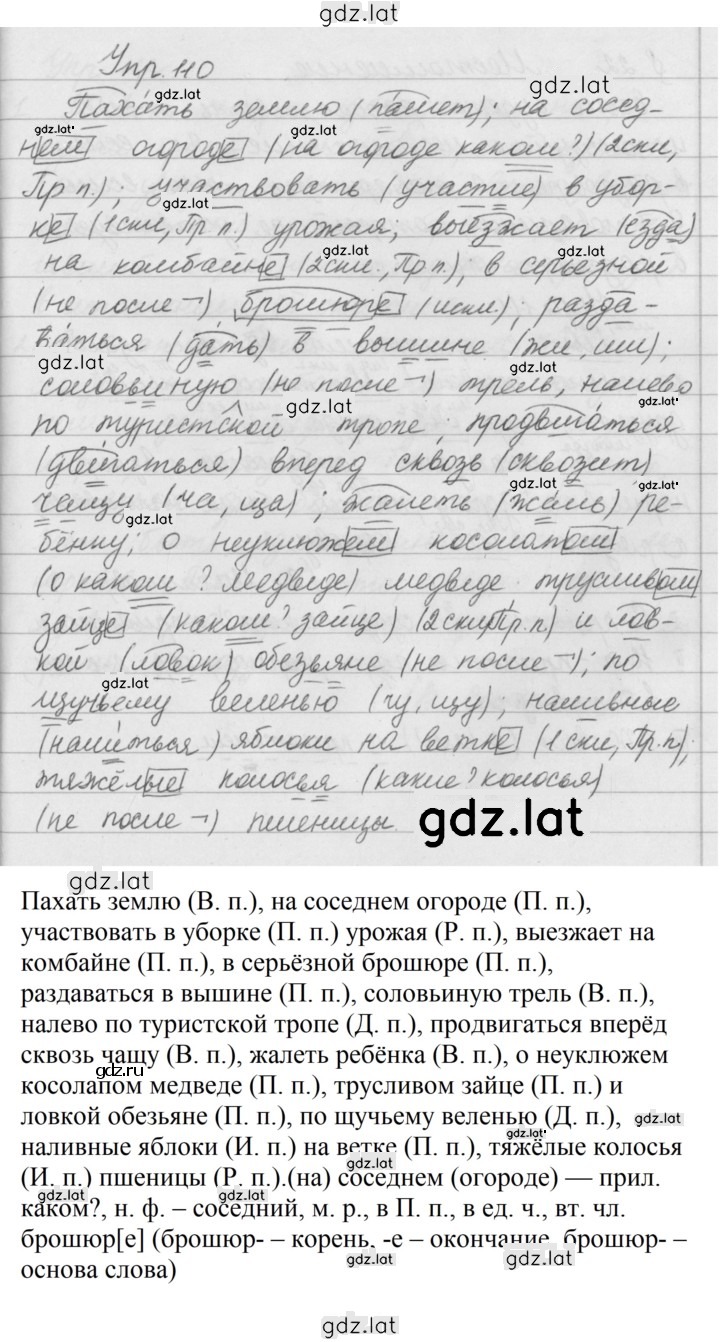 gdz.lat
Упр. 110
Пахать землю (пашет); на сосед-
gdz.lat
gdz.lat
gdz.lat
нем огороде (на огороде каком?) (2скл,
Пр п.); участвовать (участие) в убор-
gdz.lat
ке (1скл, Пр п.) урожая; выезжает (езда)
gdz.lat
на комбайне (2скл., Пр п.); в серьёзной
(не после ¬) брошюре (искл.); разда-
ваться (дать) в вышине (жи, ши);
gdz.lat
gdz.lat
соловьиную (не после ¬) трель, налево
gdz.lat
по туристской тропе; продвигаться
(двигаться) вперед сквозь (сквозит)
gdz.lat
gdz.lat
gdz.lat
чащу (ча, ща); жалеть (жаль) ре-
gdz.lat
бёнку; о неуклюжем косолапом
gdz.lat
gdz.lat
(о каком? медведе) медведе трусливом
зайце (каком? зайце) (2скл, Пр. п.) и лов-
кой (ловок) обезьяне (не после ¬); по
gdz.lat
щучьему веленью (чу, щу); наливные
(налиться) яблоки на ветке (1 скл, Пр. п.);
тяжёлые колосья (какие? колосья)
(не после ¬) пшеницы.
gdz.lat
gdz.lat
Пахать землю (В. п.), на соседнем огороде (П. п.),
участвовать в уборке (П. п.) урожая (Р. п.), выезжает на
комбайне (П. п.), в серьёзной брошюре (П. п.),
раздаваться в вышине (П. п.), соловьиную трель (В. п.),
налево по туристской тропе (Д. п.), продвигаться вперёд
сквозь чащу (В. п.), жалеть ребёнка (В. п.), о неуклюжем
gdz.ru
косолапом медведе (П. п.), трусливом зайце (П. п.) и
ловкой обезьяне (П. п.), по щучьему веленью (Д. п.),
gdz.lat
наливные яблоки (И. п.) на ветке (П. п.), тяжёлые колосья
gdz.lat
gdz.lat
(И. п.) пшеницы (Р. п.).(на) соседнем (огороде) — прил.
gdz.lat
gdz.lat
каком?, н. ф. – соседний, м. р., в П. п., в ед. ч., вт. чл.
брошюр[е] (брошюр- – корень, -е – окончание, брошюр- –
gdz.lat
gdz.lat
основа слова)
gdz.lat